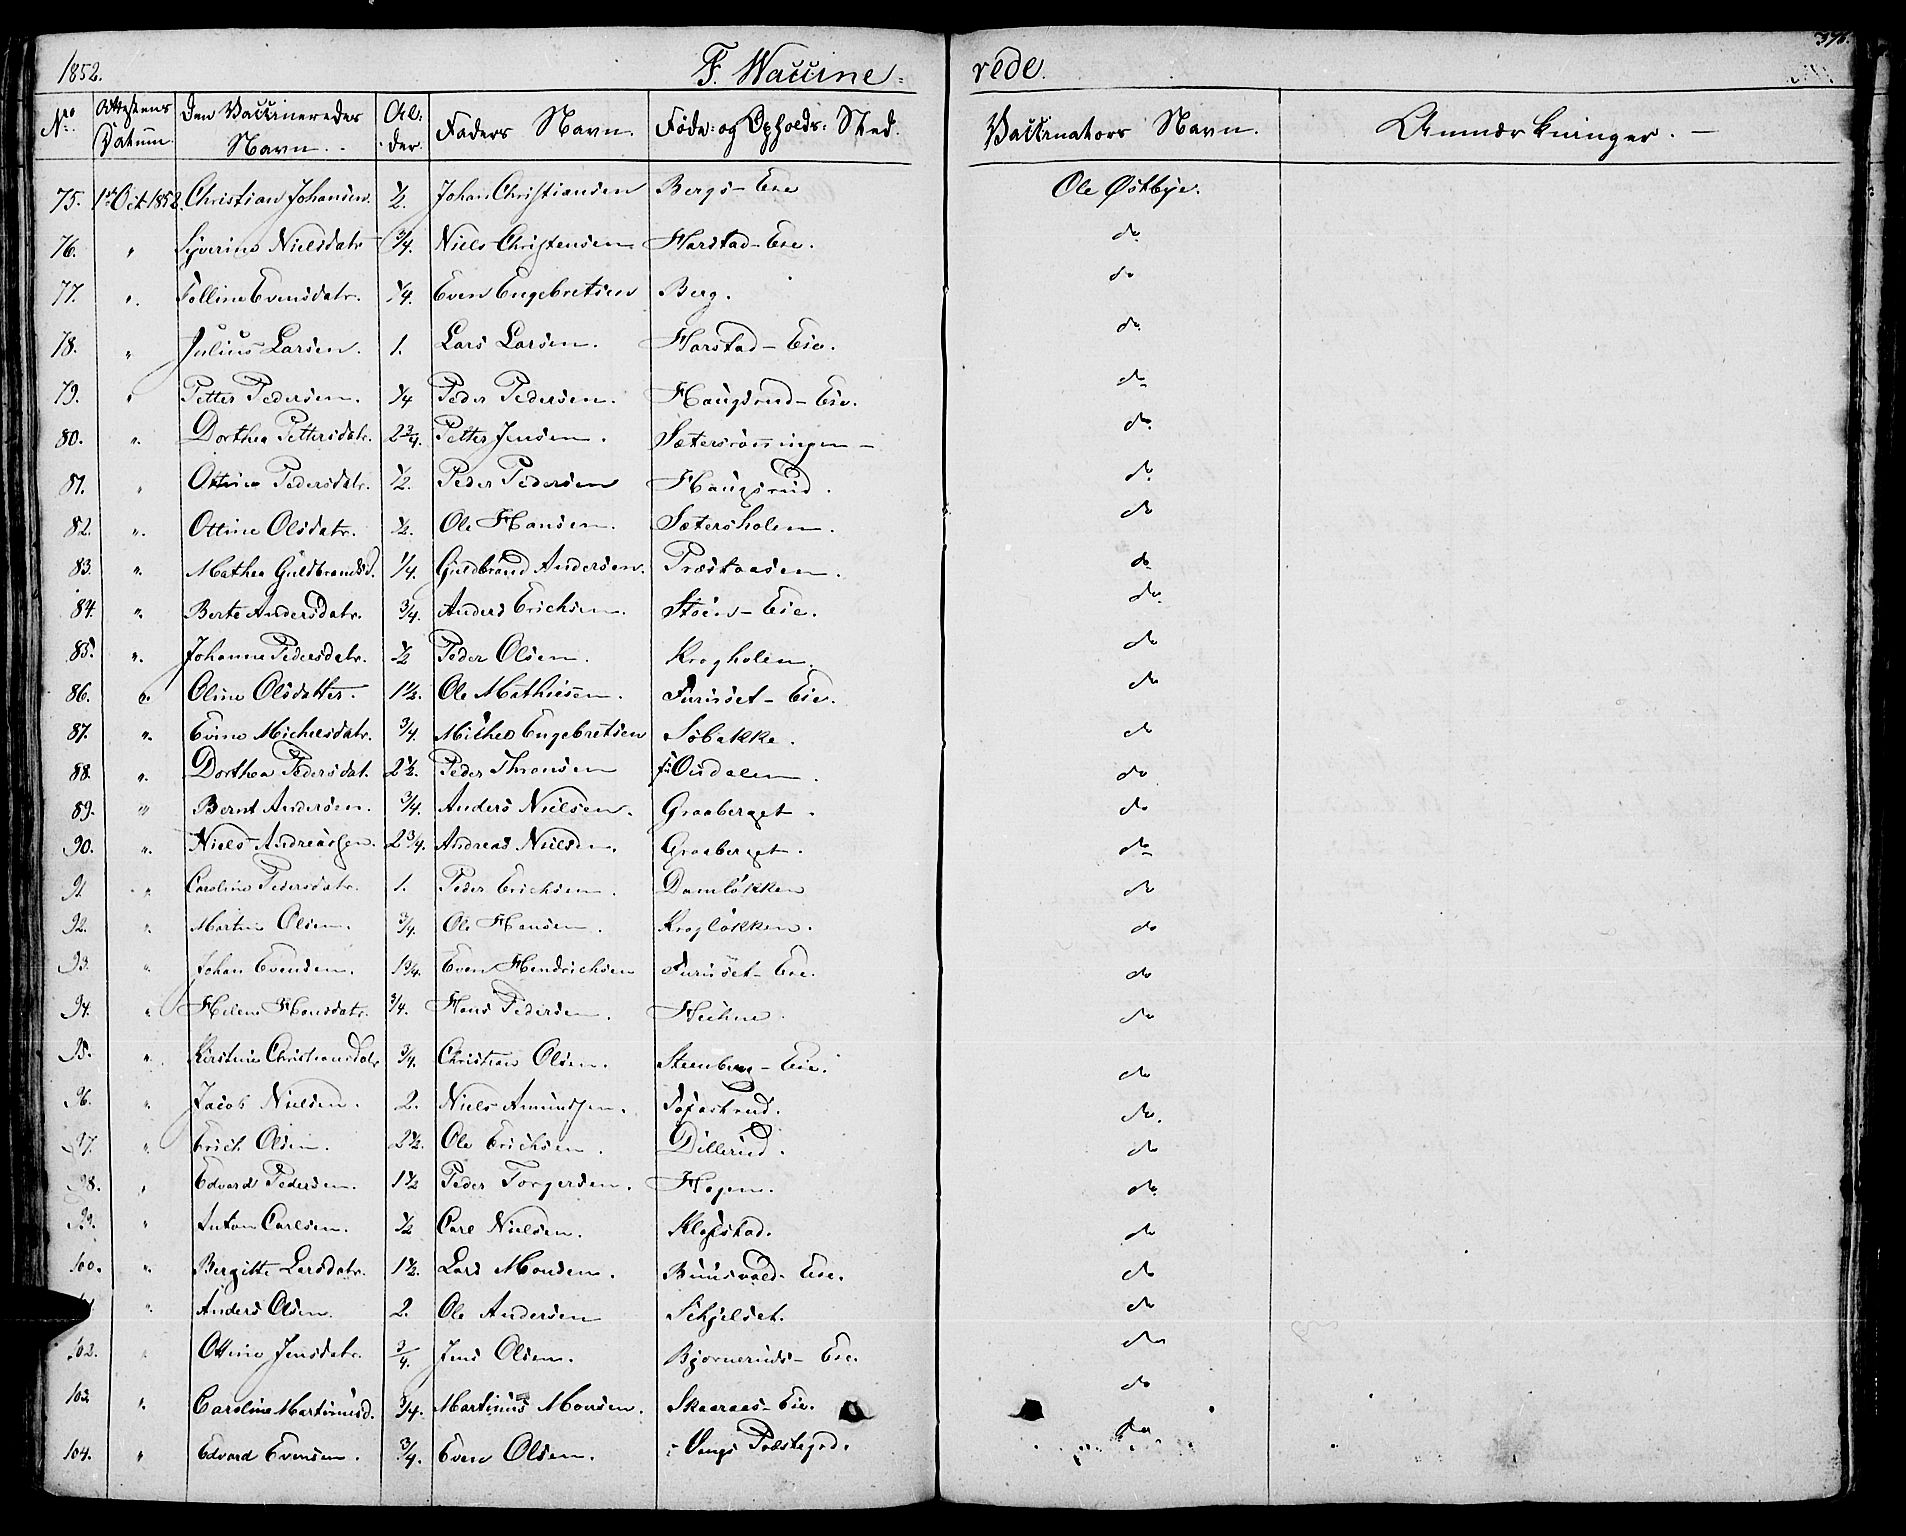 1852. F. Vaccine= rede. 376.
No. Attestens Datum. Den Vaccineredes Navn. Al: der. Faders Navn. Føde: og Opholds: Sted. Vaccinators Navn. Anmærkninger. —
75. 1st Oct 1852. Christian Johansen. 1/2. Johan Christiansen Bergs-Eie Ole Østbye.
76. " Syverine Nielsdatr 3/4. Niels Christensen Harstad-Eie. do
77. " Evensdatr. 1/4. Even Engebretsen Berg. do
78. " Julius Larsen. 1. Lars Larsen. Harstad-Eie. do
79. " Petter Pedersen. 1/4 Peder Pedersen. Haugsrud-Eie. do
80. " Dorthea Pettersdatr. 2 3/4. Petter Jensen. do
81. " Ottine Pedersdatr. 1/2. Peder Pedersen Haugsrud. do
82. " Ottine Olsdatr. 1/2. Ole Hansen. Sætersholen. do
83. " Mathea Guldbrandsd. 1/4. Guldbrand Andersen. Præstaasen. do
84. " Berte Andersdatr. 3/4. Anders Erichsen. Eie. do
85. " Johanne Pedersdatr. 1/2 Peder Olsen. Krogholen. do
86. " Oline Olsdatter. 1 1/2. Ole Mathiesen. Furuset-Eie. do
87. " Evine Michelsdatr. 3/4. Michel Engebretsen Søbakke. do
88. " Dorthea Pedersdat. 2 1/2. Peder Thronsen Osdalen. do
89. " Bernt Andersen. 3/4. Anders Nielsen. Graaberget. do
90. " Niels Andreassen. 2 3/4. Andreas Nielsen. Graaberget. do
91. " Caroline Pedersdatr. 1. Peder Erichsen. Damløkken do
92. " Martin Olsen. 3/4. Ole Hansen. Krogløkken. do
93. " Johan Evensen. 1 3/4. Even Hendrichsen Furuset-Eie. do
94. " Helene Hansdatr. 3/4. Hans Pedersen. do
95. " Kirstine Christiansdatr 3/4. Christian Olsen. Steenberg-Eie. do
96. " Jacob Nielsen. 2. Niels Amundsen. do.
97. " Erich Olsen. 2 1/2. Ole Erichsen. Dillerud. do
98. " Edvard Pedersen. 1 1/2 Peder Torgersen. Hagen. do
99. " Anton Carlsen. 1/2 Carl Nielsen. Klæstad. do
100. " Bergitte Larsdatr. 1 1/2. Lars Monsen. Eie. do
" Anders Olsen. 2. Ole Andersen Schjelset. do
102. " Ottine Jensdatr. 3/4. Jens Olsen. Bjørneruds-Eie. do
103 " Caroline Martinusd. 3/4. Martinus Monsen. Skaaraas-Eie. do
104. " Edvard Evensen. 3/4. Even Olsen. i Vangs Præstegd. do